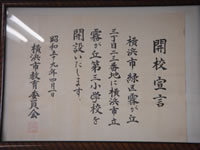 開校宣言
横浜市緑区霧が丘
三丁目二三番地に横浜市立
霧が丘第三小学校を
開設いたします。
昭和五十九年四月一日
横浜市教育委員会